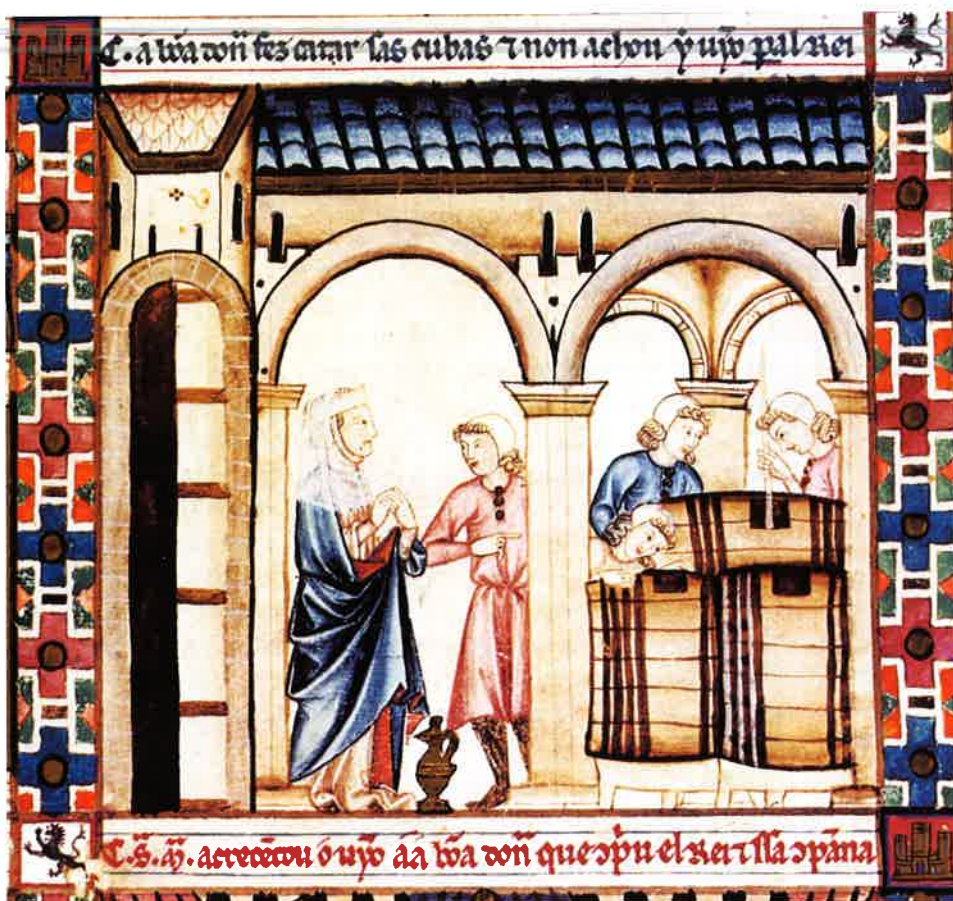 C. a bõa doñ fez catar sas cubas ⁊ non achou ỹ uỹo pal Rei
C. S. M̃. acrecẽtou o uỹo áá bõa doñ que ↄpũ el Rei ⁊ ssa ↄpãna